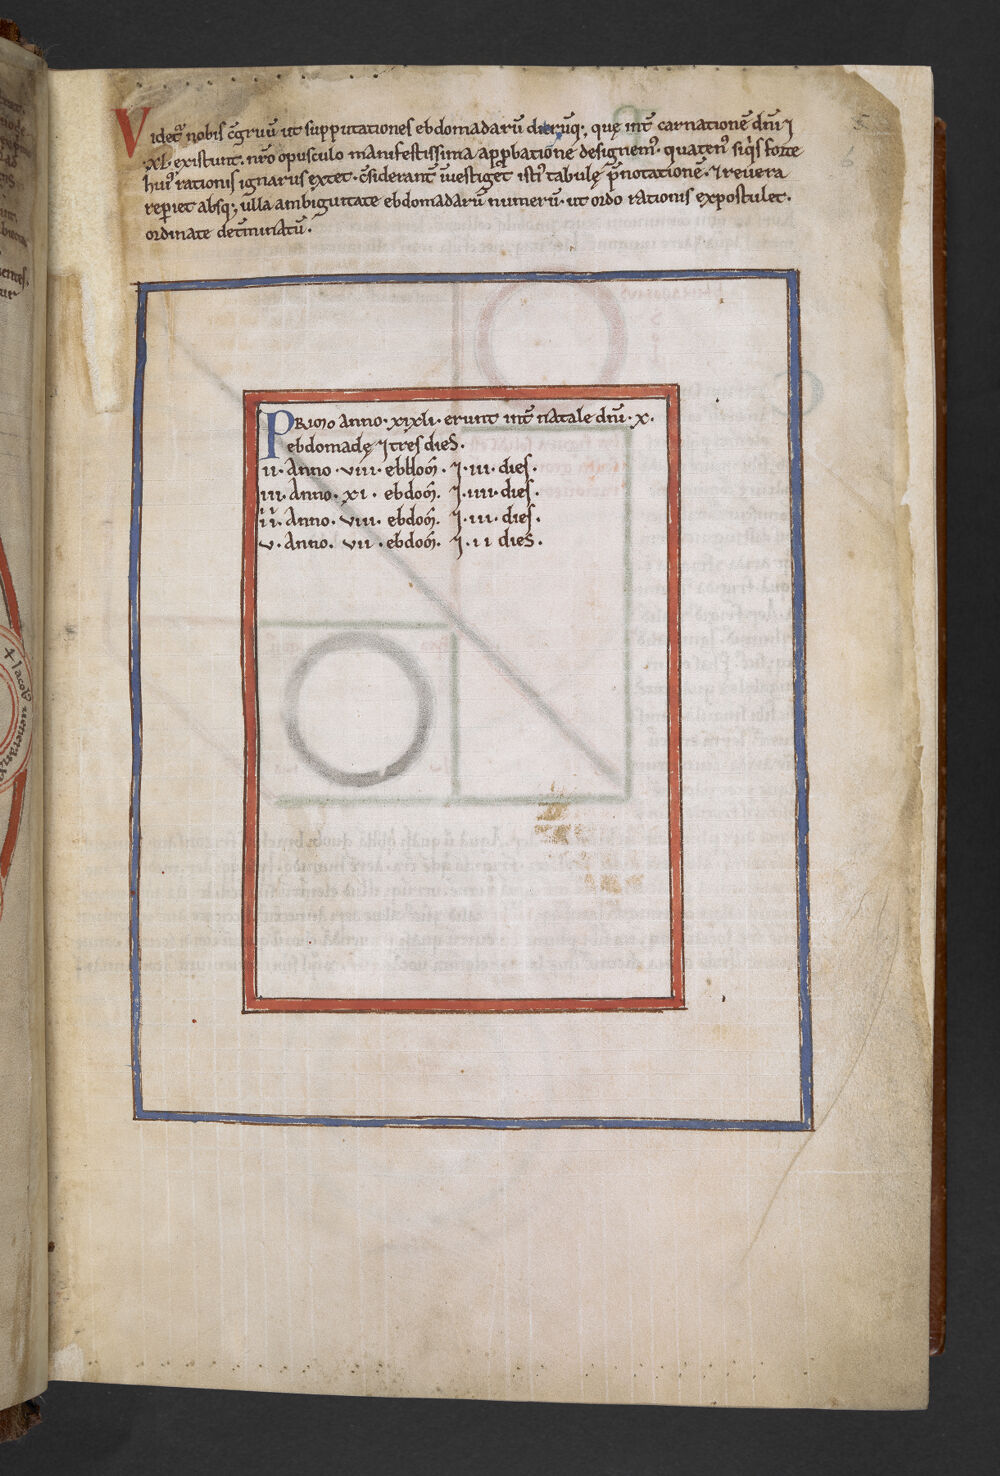 Videt᷑ nobis c̄gruū ut supputationes ebdomadarū dierūq;, quę int̄ carnationē dn̄i ⁊
.XL. existunt. nr̄o opusculo manifestissima app̱batione designem᷒. quaten᷒ siq̇s forte
hui᷒ rationis ignarus extet. c̄siderant̄ īuestiget isti᷒ tabulę p̄notationē. ⁊ reuera
rep̱iet absq; ulla ambiguitate ebdomadarū numerū. ut ordo rationis expostulet.
ordinate det̄minatū.
Primo anno. xixli. erunt int̄ natale dn̄i. x.
ebdomadę ⁊ tres dies.
ii. Anno. viii. ebdom̄. ⁊. iii. dies.
iii. Anno. xi. ebdom̄. ⁊. iiii. dies.
iiii. Anno. viii. ebdom̄. ⁊. iii. dies.
v. Anno. vii. ebdom̄. ⁊. ii dies.